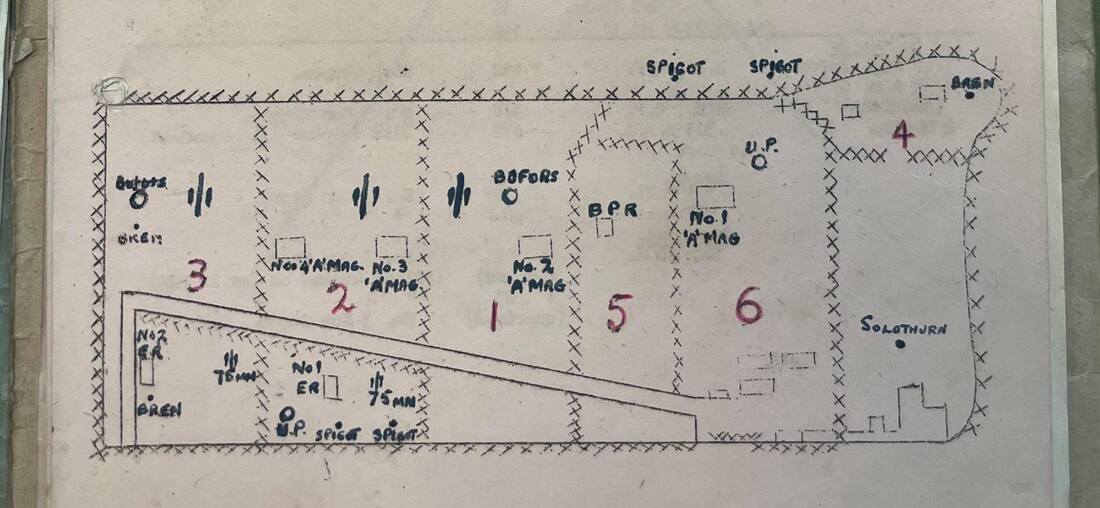 SPIGOT SPIGOT
BREN
4
U.P.
BOFORS
BOFORS
BPR
No.1
'A' MAG
BREN
No 4 'A' MAG. No.3
'A' MAG
No.2
'A' MAG
3
2
1
5
6
SOLOTHURN
No2
ER
75MM
No1
ER
75MM
BREN
U.P. SPIGOT SPIGOT